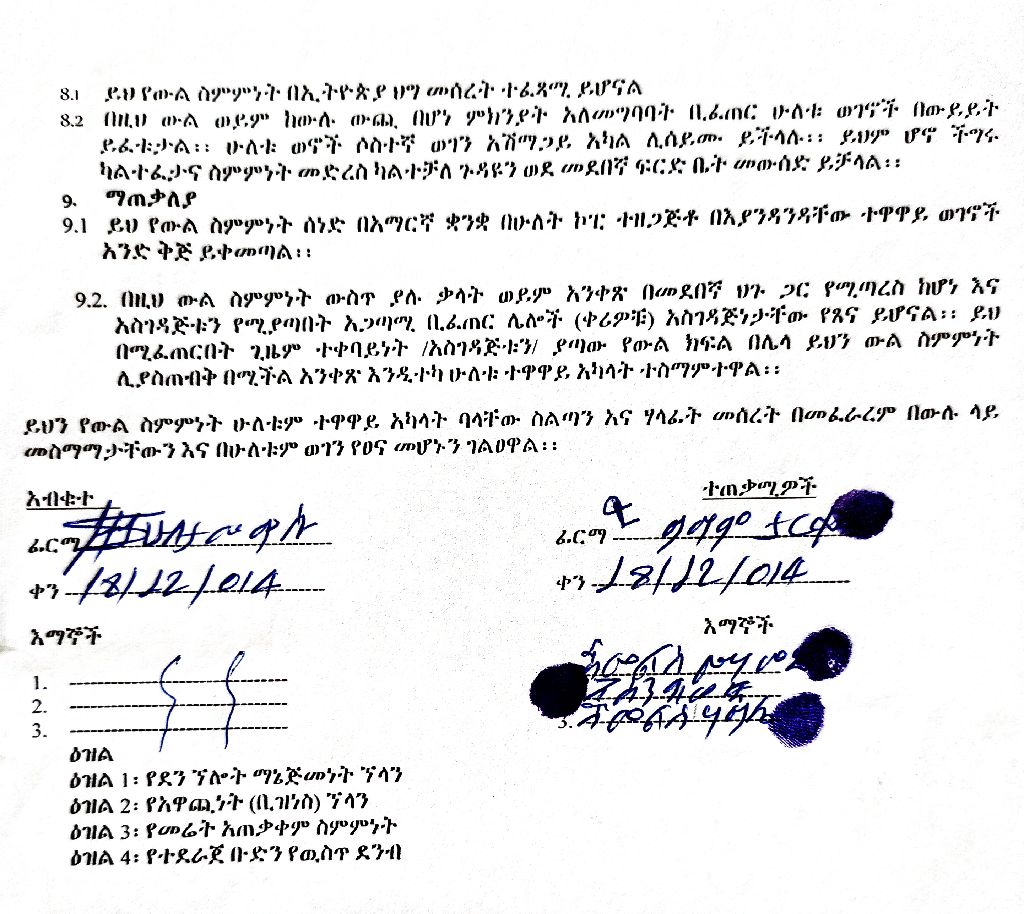 8.1 ይህ የውል ስምምነት በኢትዮጵያ ህግ መሰረት ተፈጻሚ ይሆናል
8.2 በዚህ ውል ወይም ከውሉ ውጪ በሆነ ምክንያት አለመግባባት ቢፈጠር ሁለቱ ወገኖች በውይይት
ይፈቱታል፡፡ ሁለቱ ወኖች ሶስተኛ ወገን አሸማጋይ አካል ሊሰይሙ ይችላሉ፡፡ ይህም ሆኖ ችግሩ
ካልተፈታና ስምምነት መድረስ ካልተቻለ ጉዳዩን ወደ መደበኛ ፍርድ ቤት መውሰድ ይቻላል፡፡
9. ማጠቃለያ
9.1 ይህ የውል ስምምነት ሰነድ በአማርኛ ቋንቋ በሁለት ኮፒ ተዘጋጅቶ በእያንዳንዳቸው ተዋዋይ ወገኖች
አንድ ቅጅ ይቀመጣል፡፡
9.2. በዚህ ውል ስምምነት ውስጥ ያሉ ቃላት ወይም አንቀጽ በመደበኛ ህጉ ጋር የሚጣረስ ከሆነ እና
አስገዳጅቱን የሚያጣበት አጋጣሚ ቢፈጠር ሌሎች (ቀሪዎቹ) አስገዳጅነታቸው የጸና ይሆናል፡፡ ይህ
በሚፈጠርበት ጊዜም ተቀባይነት /አስገዳጅቱን/ ያጣው የውል ክፍል በሌላ ይህን ውል ስምምነት
ሊያስጠብቅ በሚችል አንቀጽ እንዲተካ ሁለቱ ተዋዋይ አካላት ተስማምተዋል፡፡
ይህን የውል ስምምነት ሁለቱም ተዋዋይ አካላት ባላቸው ስልጣን እና ሃላፊት መሰረት በመፈራረም በውሉ ላይ
መስማማታቸውን እና በሁለቱም ወገን የፀና መሆኑን ገልፀዋል፡፡
አብቁተ
ፊርማ
ቀን 18/12/014
ተጠቃሚዎች
ፊርማ
ቀን 18/12/014
እማኞች
1.
2.
3.
እማኞች
3.
ዕዝል
ዕዝል 1፡ የደን ኘሎት ማኔጅመነት ኘላን
ዕዝል 2፡ የአዋጪነት (ቢዝነስ) ኘላን
ዕዝል 3፡ የመሬት አጠቃቀም ስምምነት
ዕዝል 4፡ የተደራጀ ቡድን የዉስጥ ደንብ